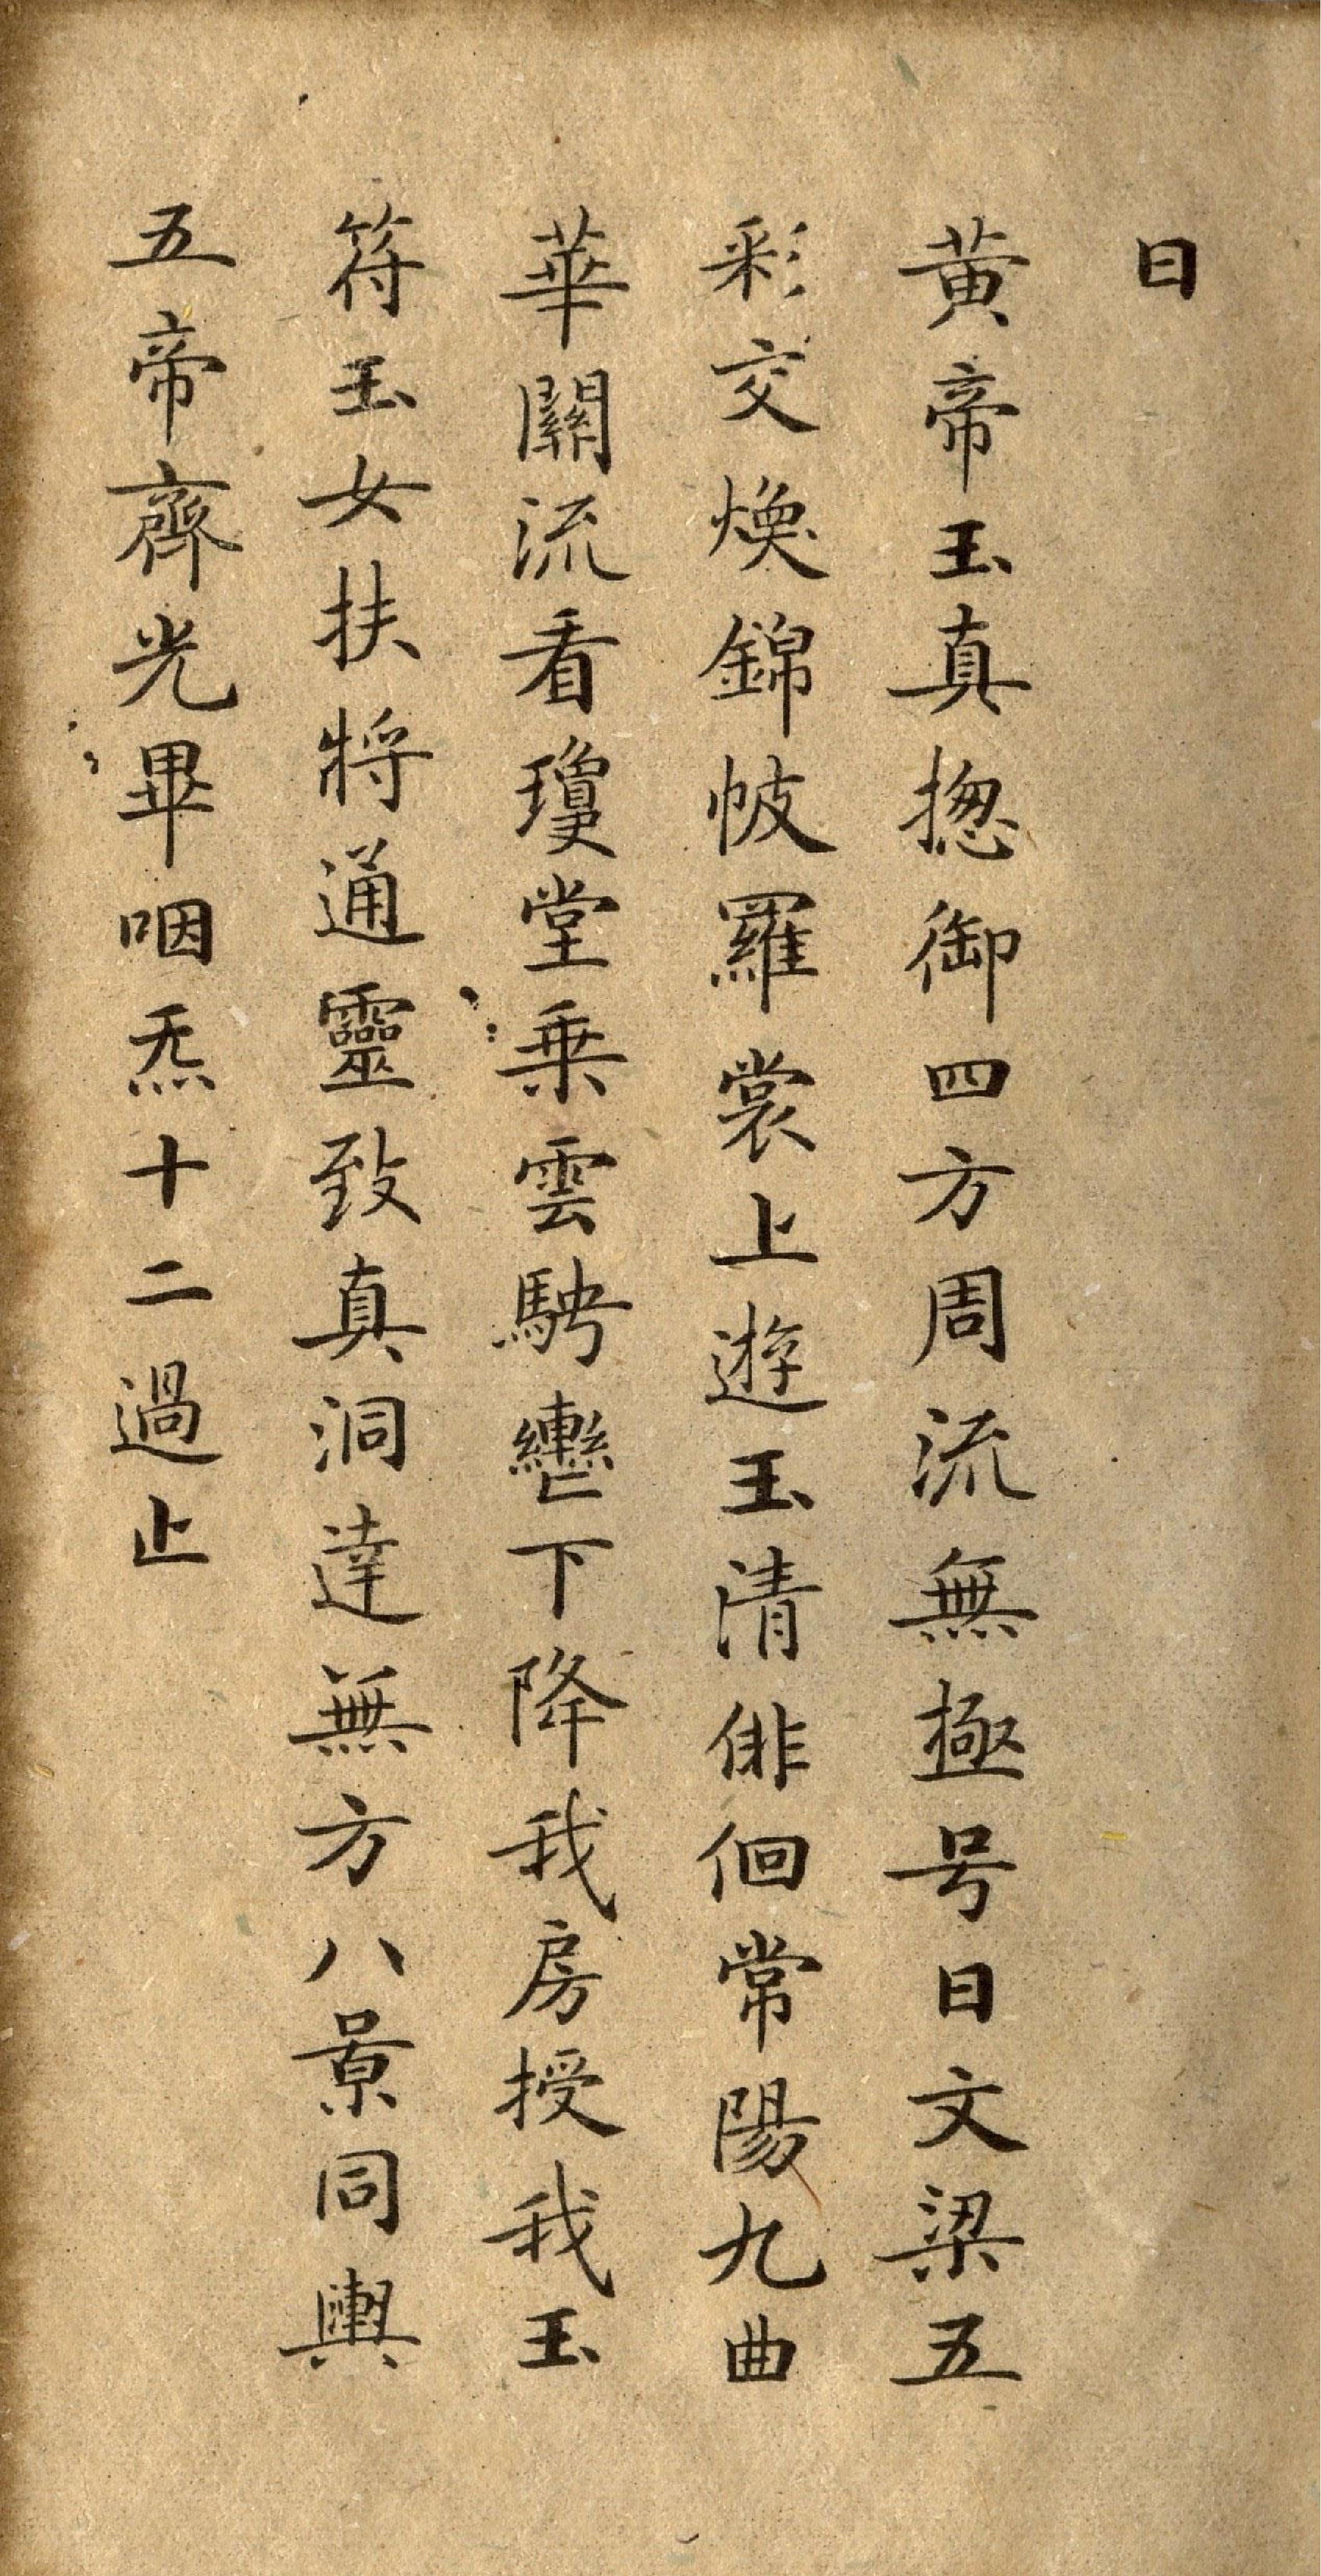 曰
黃帝玉真揔御四方周流無極号曰文梁五
彩交煥錦帔羅裳上遊玉清俳佪常陽九曲
華關流看瓊堂乗雲騁轡下降我房授我玉
符玉女扶將通靈致真洞達無方八景同輿
五帝齊光畢咽炁十二過止